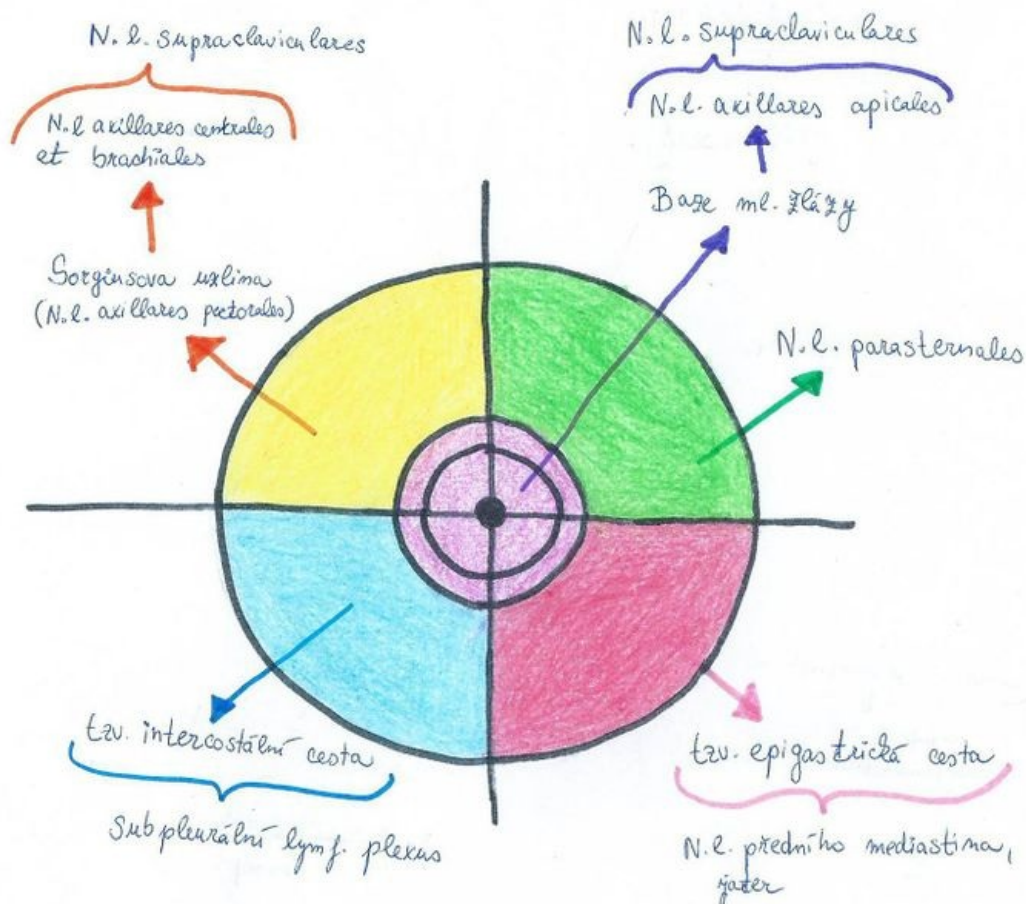 N. l. supraclaviculares
N.l axillares centrales
et brachiales
Sorgiusova uzlina
(N.l. axillares pectorales)
N. l. supraclaviculares
N.l. axillares apicales
Baze ml. žlázy
N.l. parasternales
tzv. intercostální cesta
Subpleurální lymf. plexus
tzv. epigastrická cesta
N.l. předního mediastina,
jater